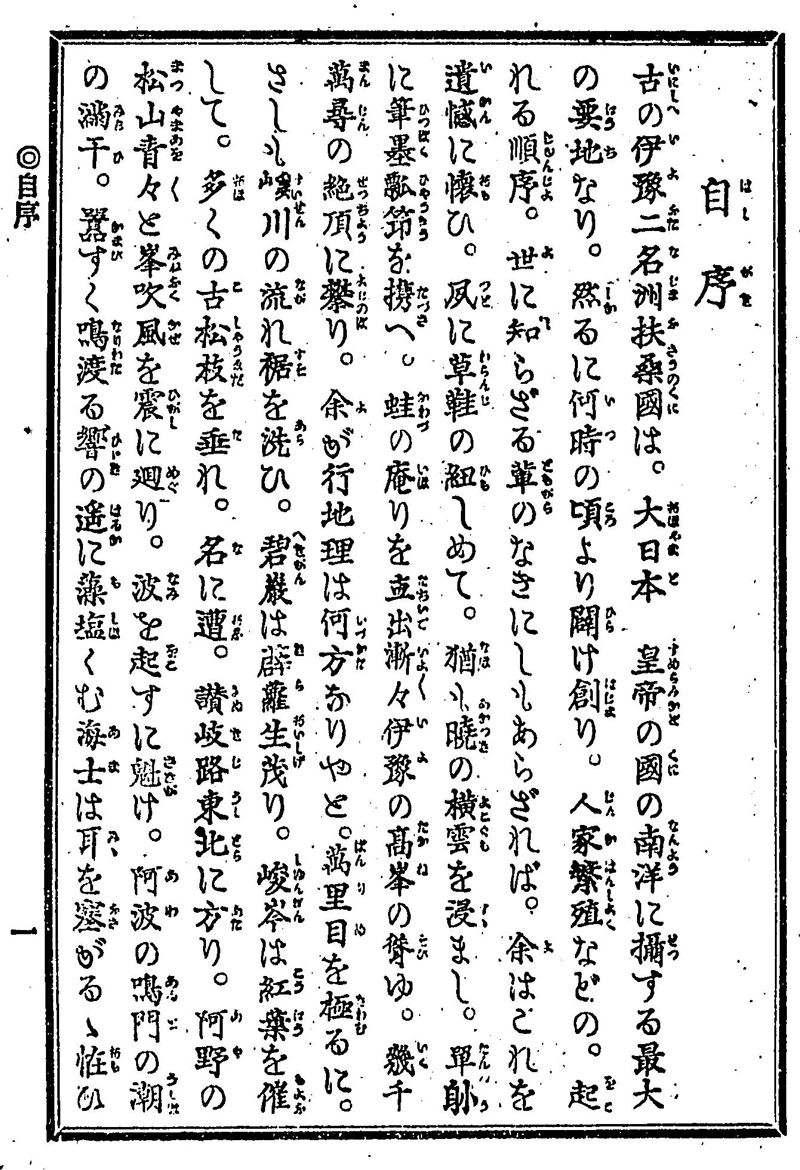 自序
古の伊豫二名洲扶桑國は。大日本　皇帝の國の南洋に攝する最大
の要地なり。然るに何時の頃より闢け創り。人家繁殖などの。起
れる順序。世に知らざる輩のなきにしもあらざれば。余はこれを
遺憾に懐ひ。夙に草鞋の紐しめて。猶も曉の横雲を浸まし。單身
に筆墨瓢節を携へ。蛙の庵りを立出漸々伊豫の高峯の聳ゆ。幾千
萬尋の絶頂に攀り。余が行地理は何方なりやと。萬里目を極るに。
さしも川の流れ裾を洗ひ。碧巖は薜蘿生茂り。峻岑は紅葉を催
して。多くの古松枝を垂れ。名に遭。讃岐路東北に方り。阿野の
松山青々と峯吹風を震に廻り。波を起すに魁け。阿波の鳴門の潮
の滿干。囂すく鳴渡る響の遥に藻塩くむ海士は耳を塞がるゝ恠ひ
◎自序
一